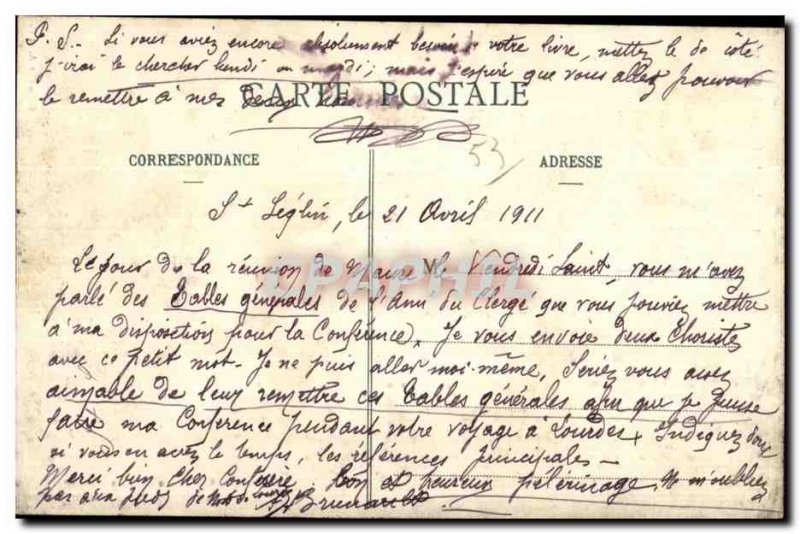 P. S. Si vous aviez encore absolument besoin de votre livre, mettez le de côté
j'irai le chercher lundi ou mardi; mais j'espère que vous allez pouvoir
le remettre à mes deux
CARTE POSTALE
53
CORRESPONDANCE
ADRESSE
St Léglin, le 21 Avril 1911
CPAPHIL
Le jour de la réunion de M Vendredi Saint, vous m'avez
parlé des Tables générales de l'Ami du Clergé que vous pouviez mettre
à ma disposition pour la Conférence. Je vous envoie deux Choristes
avec ce petit mot. Je ne puis aller moi-même, Seriez vous assez
aimable de leur remettre ces Tables générales afin que je puisse
faire ma Conférence pendant votre voyage à Lourdes. Indiquez donc
si vous en avez le temps, les références principales —
Merci bien Cher Confrère, bon et heureux pèlerinage. Ne m'oubliez
pas aux pieds de